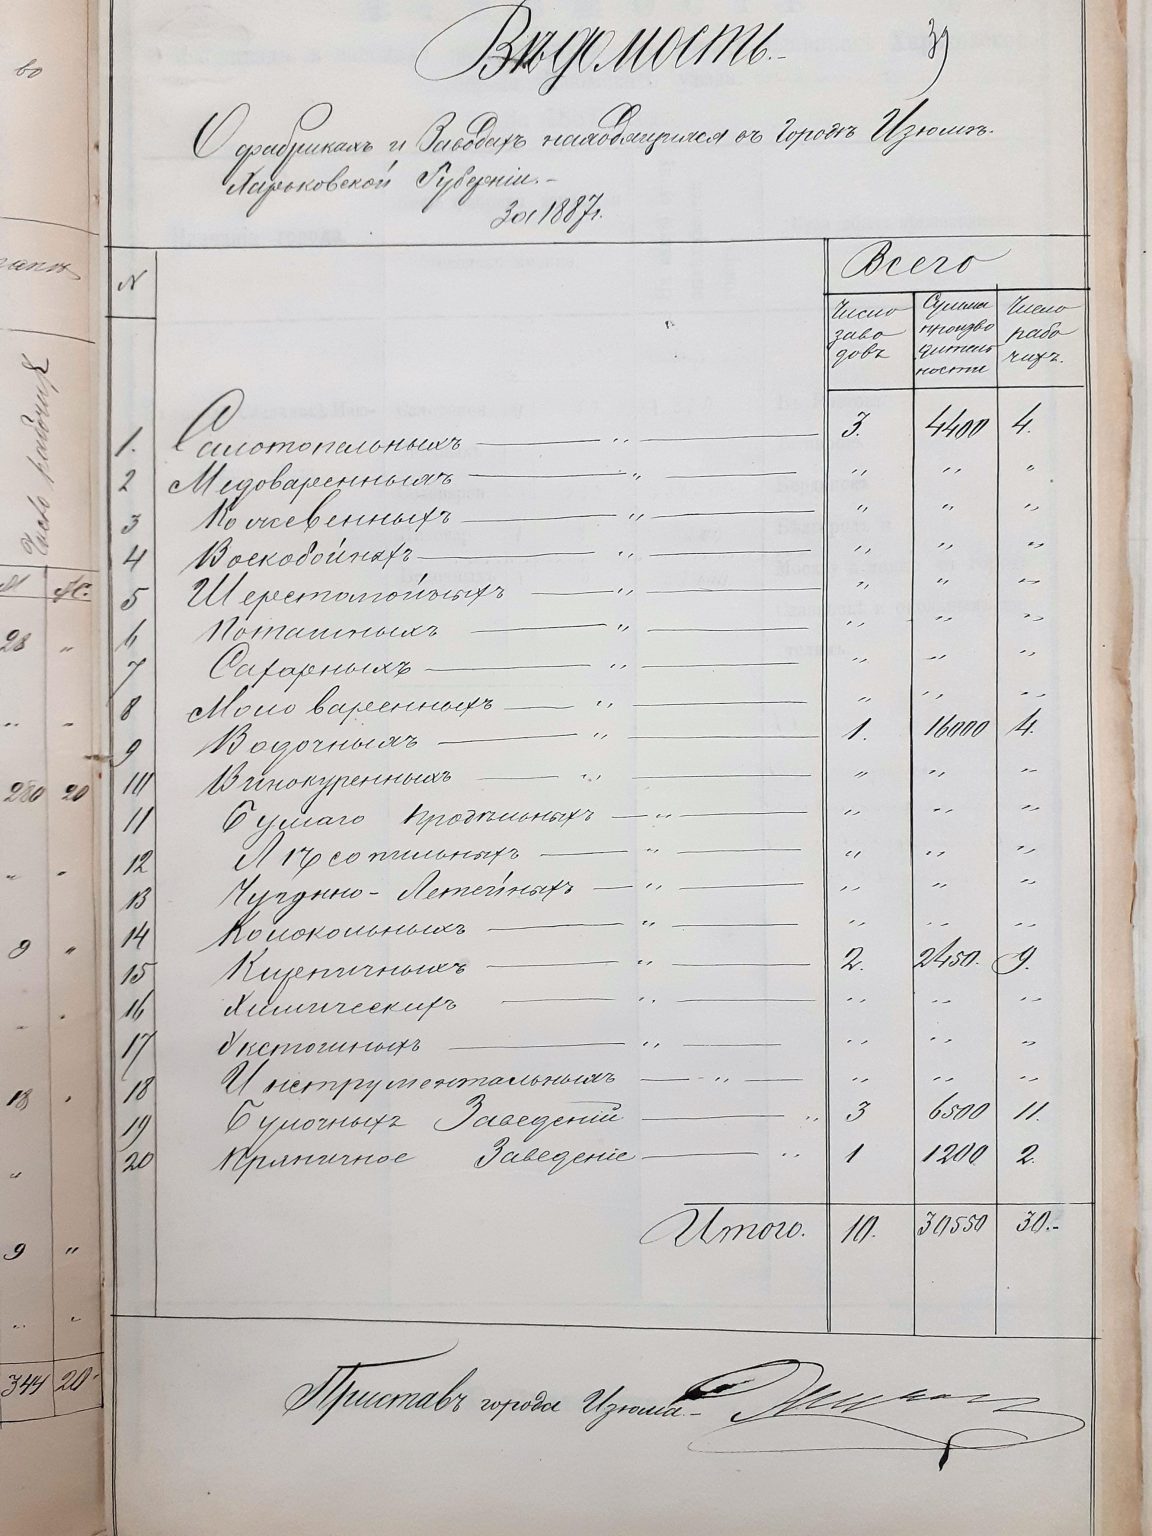 во
Число рабочих
Р. К.
28 „
„ „
280 20
„ „
9 „
„ „
18 „
„
9 „
„ „
344 20
Вѣдомость.-
О фабрикахъ и Заводахъ находящихся въ Городѣ Изюмѣ.
Харьковской Губерніи.-
За 1887г.
N Всего
Число заво довъ Сумма произво дитель ности Число рабо чихъ.
1. Салотопельныхъ „ 3. 4400 4.
2 Медоваренныхъ „ „ „ „
3 Кожевенныхъ „ „ „ „
4 Воскобойныхъ „ „ „ „
5 Шерстомойныхъ „ „ „ „
6 Поташныхъ „ „ „ „
7 Сахарныхъ „ „ „ „
8 Мыловаренныхъ „ „ „ „
9 Водочныхъ „ 1. 16000 4.
10 Винокуренныхъ „ „ „ „
11 Бумаго прядильныхъ „ „ „ „
12 Лѣсопильныхъ „ „ „ „
13 Чугунно-Летейныхъ „ „ „ „
14 Колокольныхъ „ „ „ „
15 Кирпичныхъ „ 2. 2450. 9.
16 Химическихъ „ „ „ „
17 „ „ „ „
18 Инструментальныхъ „ „ „ „
19 Булочныхъ Заведеній „ 3 6500 11.
20 Пряничное Заведеніе „ 1 1200 2.
Итого. 10. 30550 30.-
Приставъ города Изюма.-